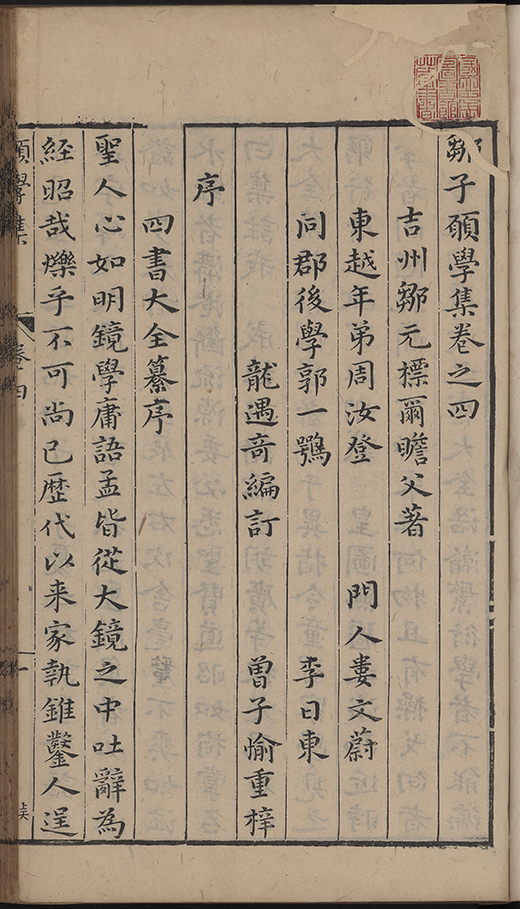 鄒子願學集卷之四
吉州鄒元標爾瞻父著
東越年弟周汝登　門人婁文蔚
同郡後學郭一鶚　李日東
龍遇奇編訂　曾子愉重梓
序
四書大全纂序
聖人心如明鏡學庸語孟皆從大鏡之中吐辭為
經昭哉爍乎不可尚已歷代以来家執錐鑿人逞
願學集　卷四　一